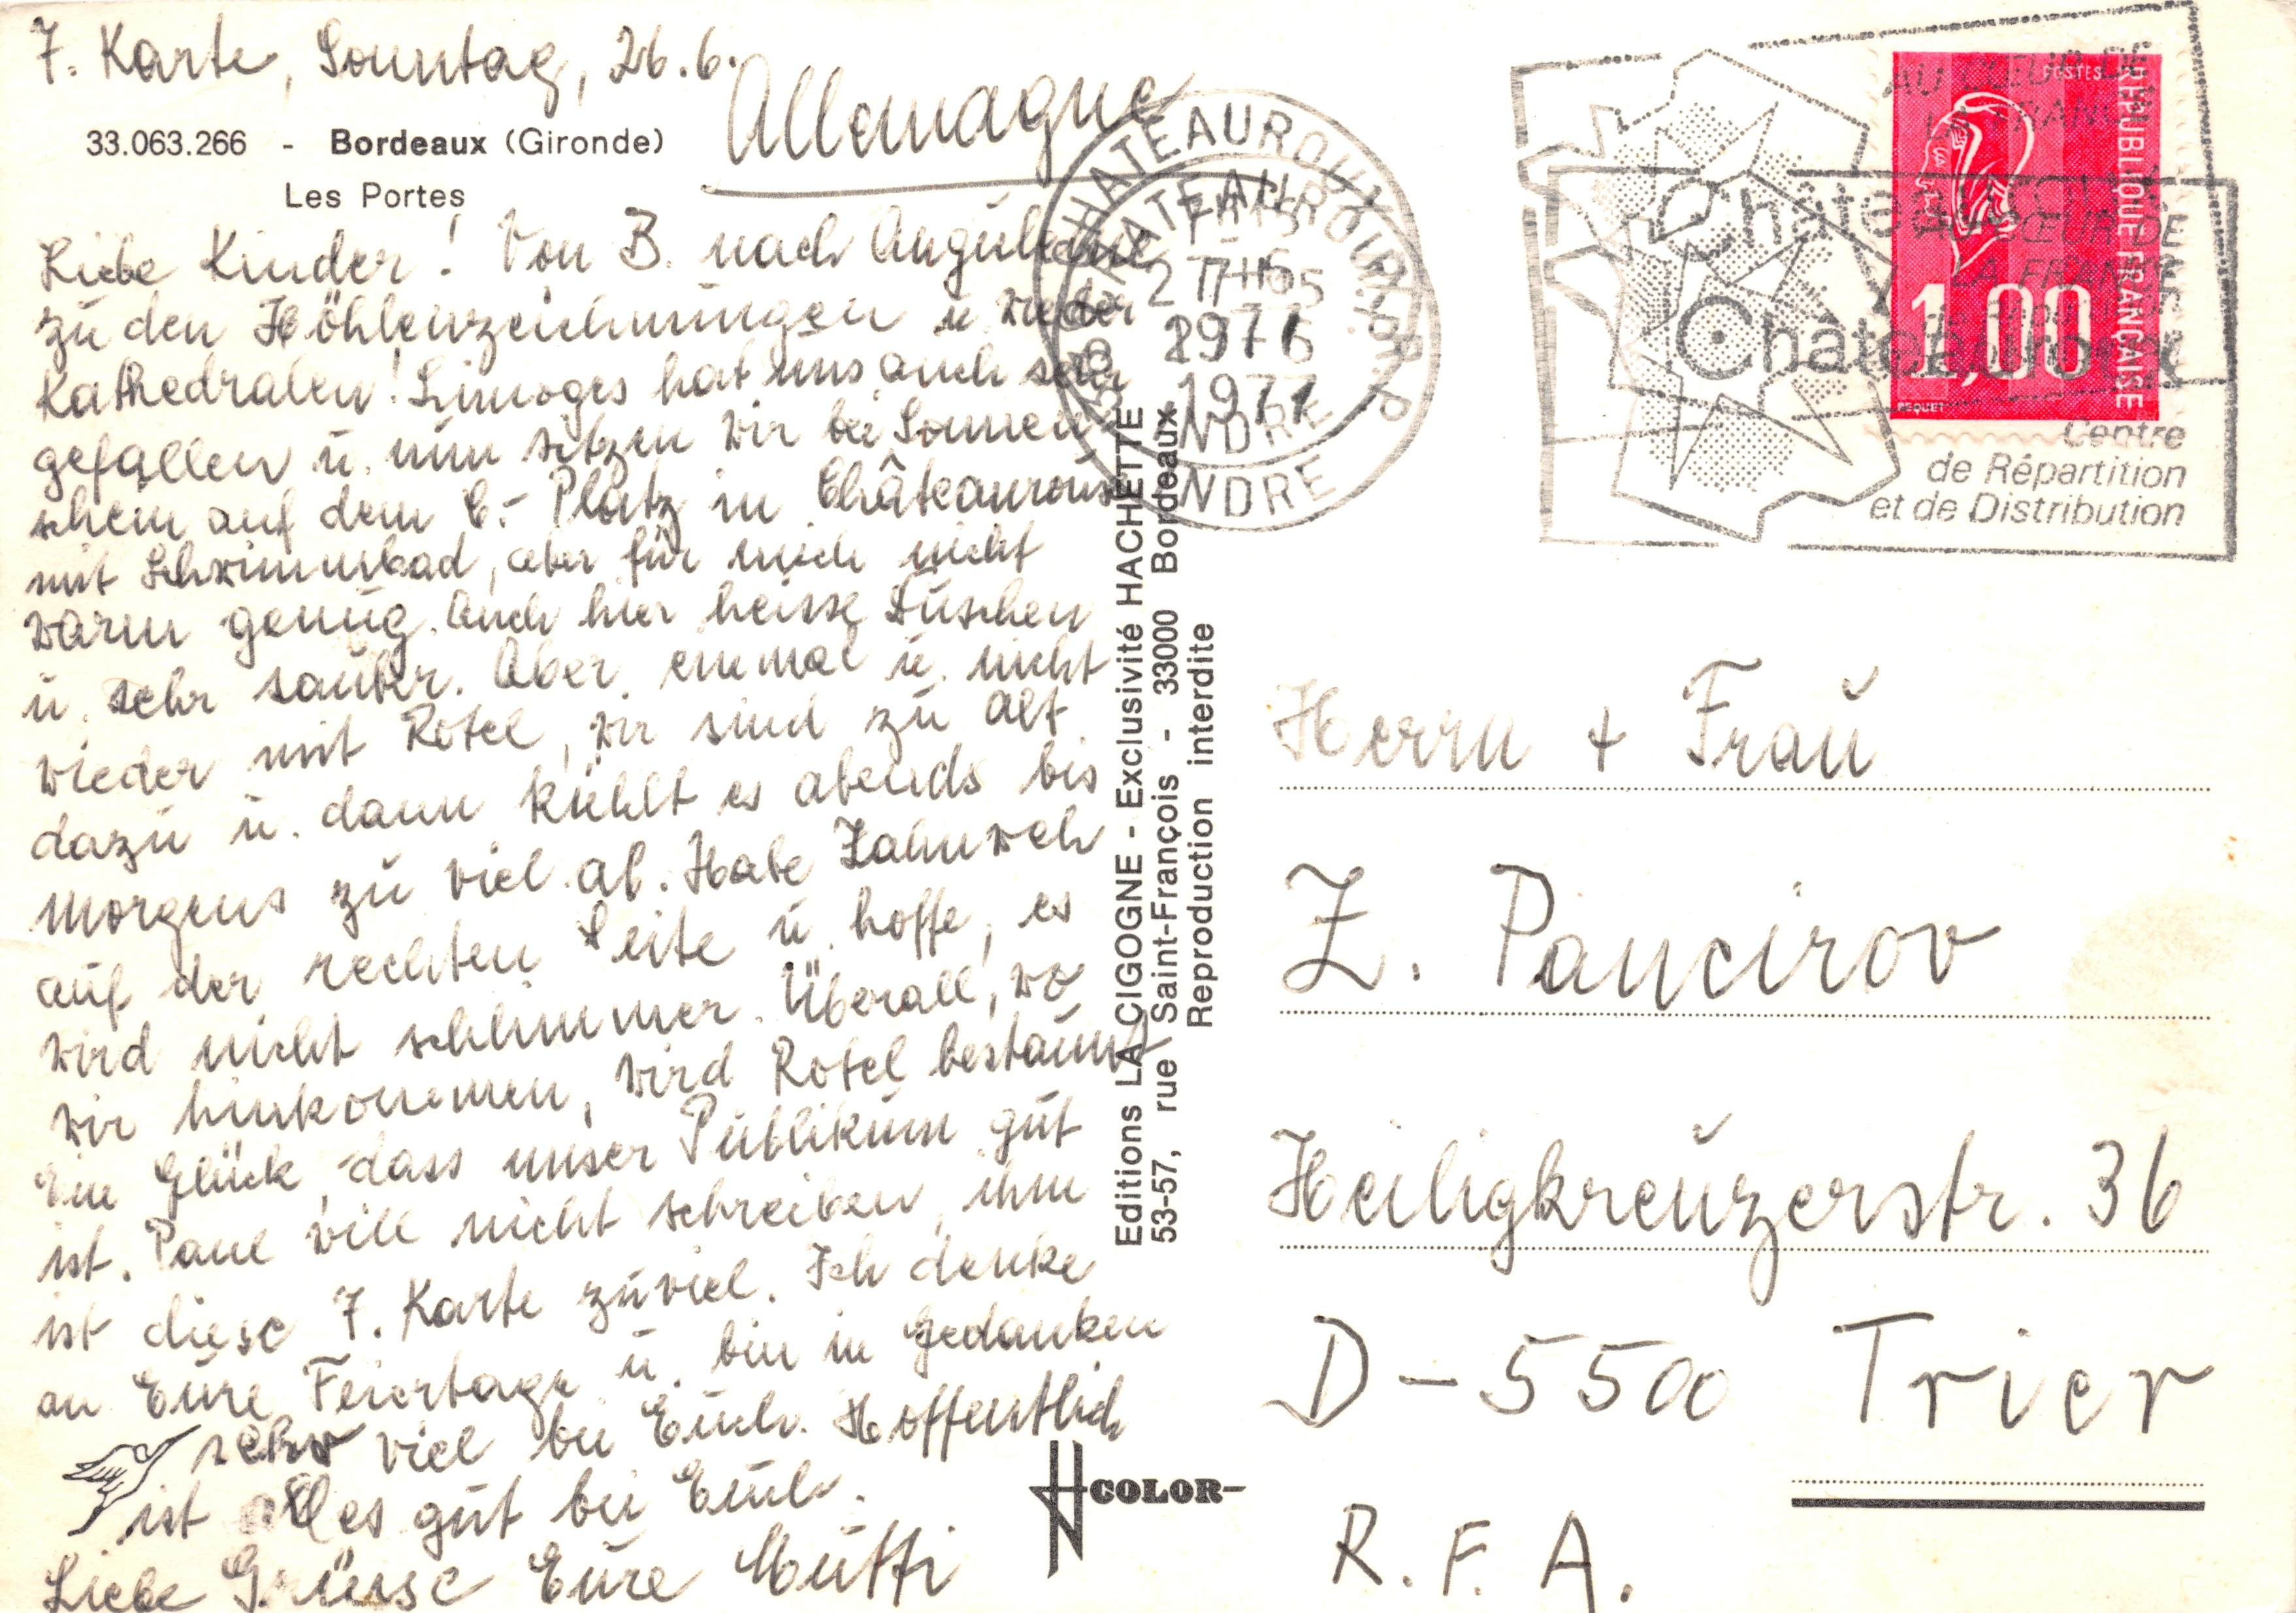 7. Karte, Sonntag, 26.6.
Allemagne
33.063.266 - Bordeaux (Gironde)
Les Portes
Liebe Kinder! Von B. nach Angulème
zu den Höhlenzeichnungen u. wieder
Kathedralen! Limoges hat uns auch sehr
gefallen u. nun sitzen wir bei Sonnen-
schein auf dem C.-Platz in Châteauroux
mit Schwimmbad, aber für mich nicht
warm genug. Auch hier heisse Duschen
u. sehr sauber. Aber einmal u. nicht
wieder mit Rotel, wir sind zu alt
dazu u. dann kühlt es abends bis
morgens zu viel ab. Habe Zahnweh
auf der rechten Seite u. hoffe, es
wird nicht schlimmer. Überall, wo
wir hinkommen, wird Rotel bestaunt
Ein Glück, dass unser Publikum gut
ist. Paul will nicht schreiben, ihm
ist diese 7. Karte zuviel. Ich denke
an Eure Feiertage u. bin in Gedanken
sehr viel bei Euch. Hoffentlich
ist alles gut bei Euch.
Liebe Grüsse Eure Mutti
Editions LA CIGOGNE - Exclusivité HACHETTE
53-57, rue Saint-François - 33000 Bordeaux
Reproduction interdite
COLOR
CHATEAUROUX R.P.
CHATEAUROUX R.P.
27-6
1977
1977
INDRE
INDRE
AU CŒUR DE
LA FRANCE
AU CŒUR DE
LA FRANCE
Châteauroux
Châteauroux
Centre
de Répartition
et de Distribution
POSTES
REPUBLIQUE FRANÇAISE
1,00
BEQUET
Herrn + Frau
Z. Pancirov
Heiligkreuzerstr. 36
D-5500 Trier
R.F.A.